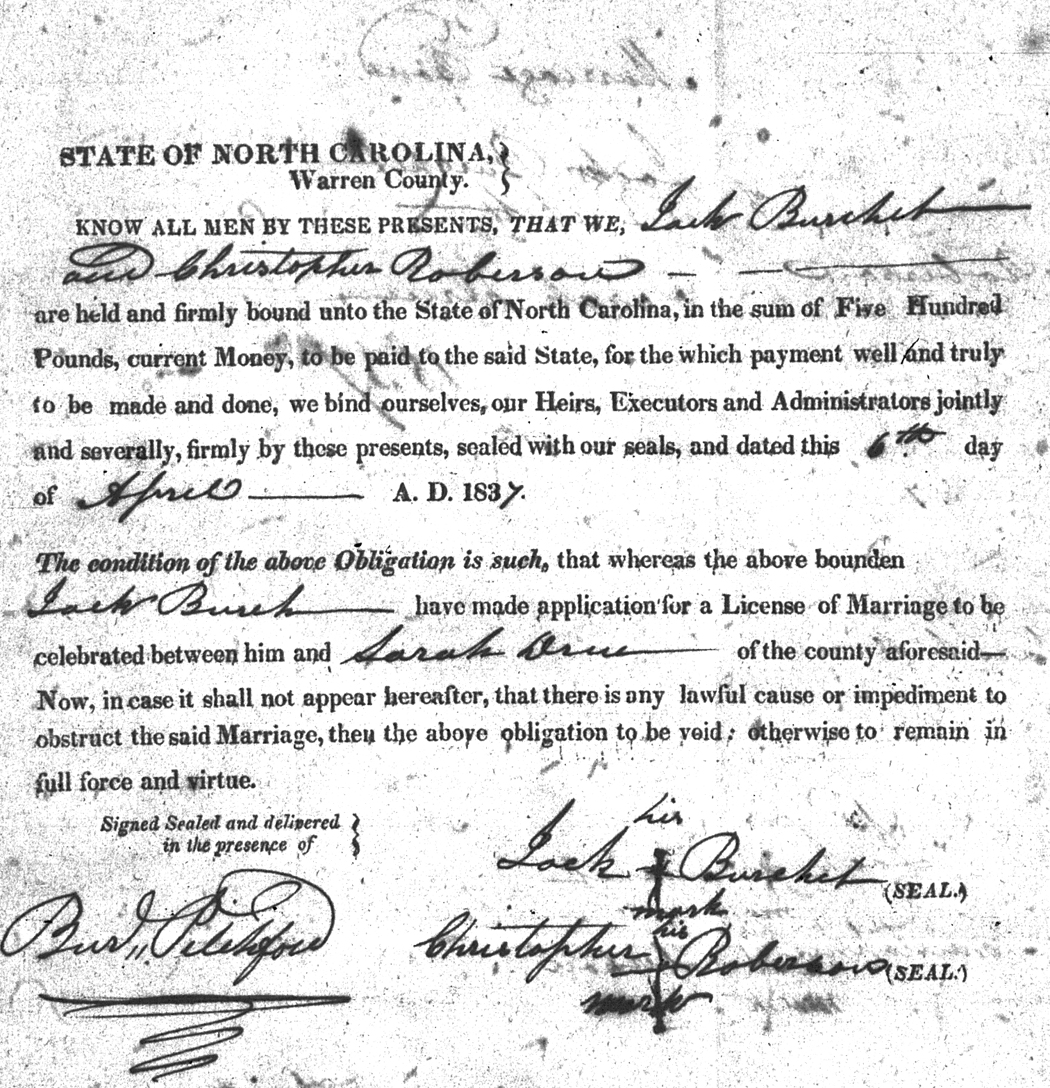 STATE OF NORTH CAROLINA,
Warren County.
KNOW ALL MEN BY THESE PRESENTS, THAT WE, Jack Burchet
and Christopher Roberson
are held and firmly bound unto the State of North Carolina, in the sum of Five Hundred
Pounds, current Money, to be paid to the said State, for the which payment well and truly
to be made and done, we bind ourselves, our Heirs, Executors and Administrators jointly
and severally, firmly by these presents, sealed with our seals, and dated this 6th day
of April A. D. 1837.
The condition of the above Obligation is such, that whereas the above bounden
Jack Burch have made application for a License of Marriage to be
celebrated between him and Sarah of the county aforesaid—
Now, in case it shall not appear hereafter, that there is any lawful cause or impediment to
obstruct the said Marriage, then the above obligation to be void; otherwise to remain in
full force and virtue.
Signed Sealed and delivered
in the presence of
his
Jack Burchet (SEAL.)
mark
Burd. Pitchford
his
Christopher Roberson (SEAL.)
mark